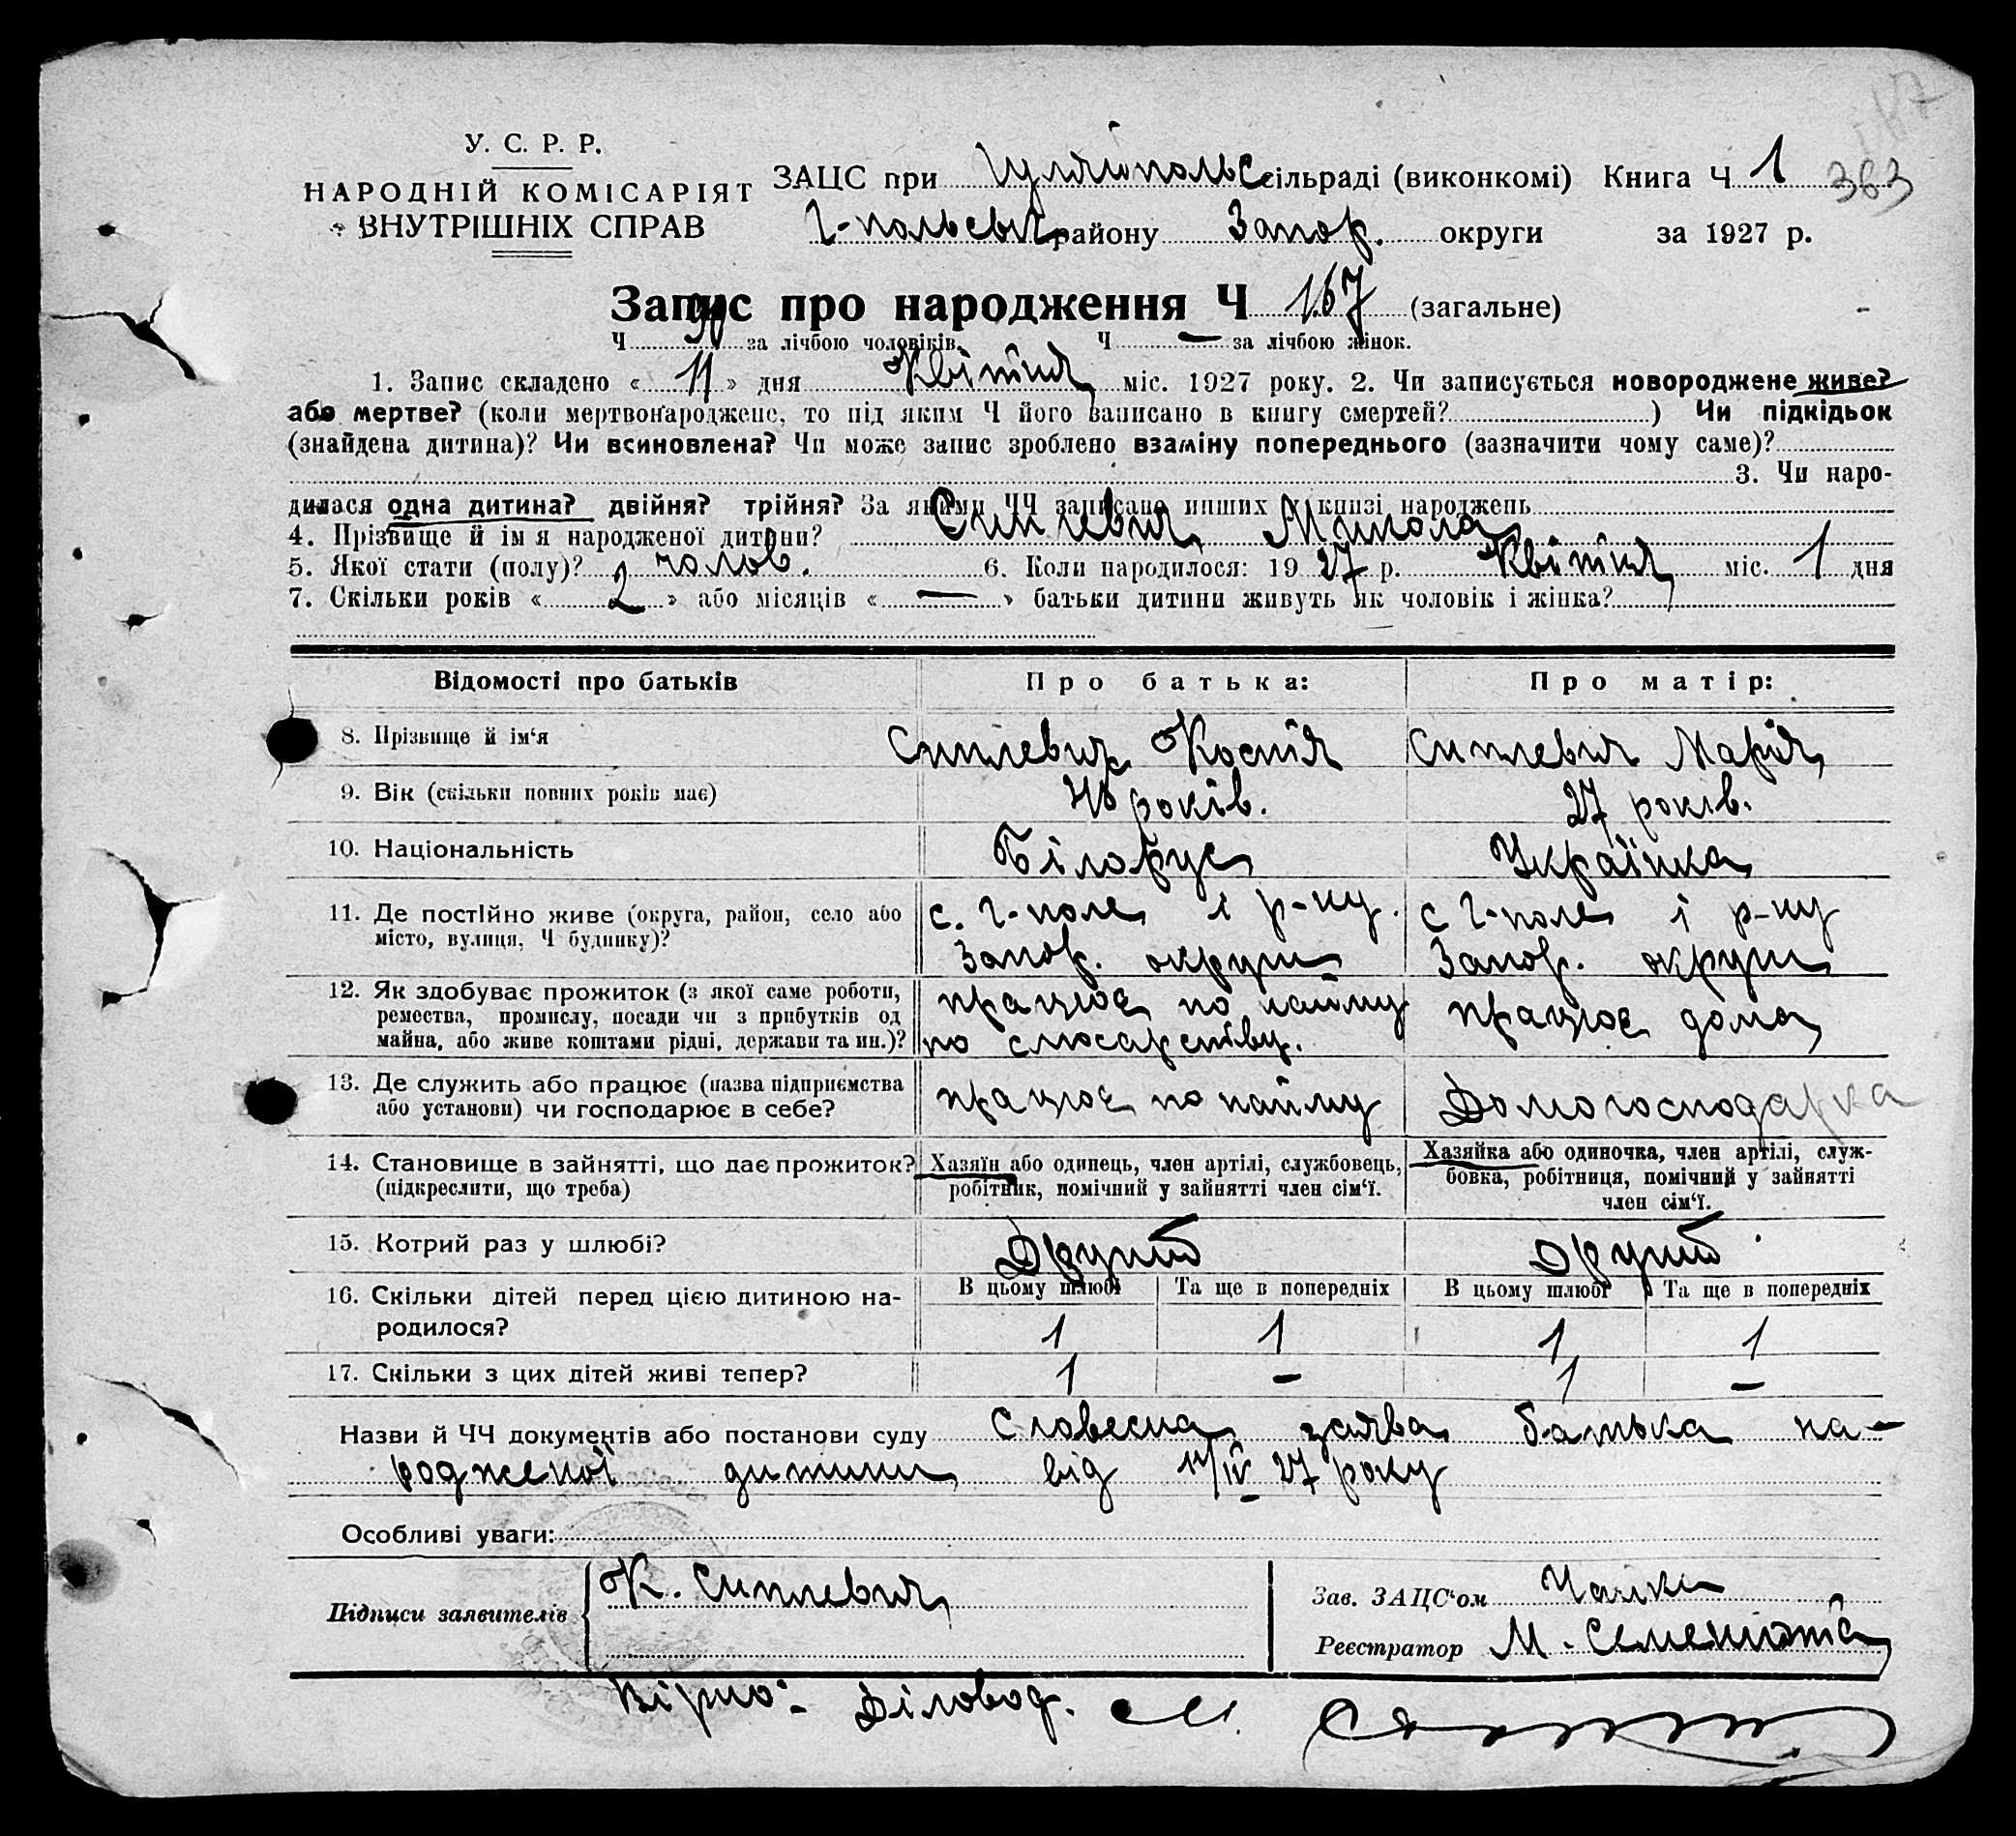 363
У. С. Р. Р.
НАРОДНІЙ КОМІСАРІЯТ
ВНУТРІШНІХ СПРАВ
ЗАЦС при Гуляйпольс сільраді (виконкомі) Книга Ч 1
Г-польськ району Запор. округи за 1927 р.
Запис про народження Ч 167 (загальне)
Ч 90 за лічбою чоловіків. Ч — за лічбою жінок.
1. Запис складено « 11 » дня Квітня міс. 1927 року. 2. Чи записується новороджене живе?
або мертве? (коли мертвонароджене, то під яким Ч його записано в книгу смертей? ) Чи підкідьок
(знайдена дитина)? Чи всиновлена? Чи може запис зроблено взаміну попереднього (зазначити чому саме)?
3. Чи наро-
дилася одна дитина? двійня? трійня? За якими ЧЧ записано инших у книзі народжень
4. Прізвище й імя народженої дитини? Микола
5. Якої стати (полу)? чолов. 6. Коли народилося: 19 27 р. Квітня міс. 1 дня
7. Скільки років « 2 » або місяців « — » батьки дитини живуть як чоловік і жінка?
Відомості про батьків Про батька: Про матір:
8. Прізвище й ім'я Костя Марія
9. Вік (скільки повних років має) років. 27 років.
10. Національність Білорус Українка
11. Де постійно живе (округа, район, село або с. Г-поле і р-ну с Г-поле і р-ну
місто, вулиця, Ч будинку)? Запор. округи Запор. округи
12. Як здобуває прожиток (з якої саме роботи, працює по найму працює дома
ремества, промислу, посади чи з прибутків од
майна, або живе коштами рідні, держави та ин.)? по слюсарству.
13. Де служить або працює (назва підприємства працює по найму Домогосподарка
або установи) чи господарює в себе?
14. Становище в зайнятті, що дає прожиток? Хазяїн або одинець, член артілі, службовець, Хазяйка або одиночка, член артілі, служ-
(підкреслити, що треба) робітник, помічний у зайнятті член сім'ї. бовка, робітниця, помічний у зайнятті
член сім'ї.
15. Котрий раз у шлюбі? Другий другий
16. Скільки дітей перед цією дитиною на- В цьому шлюбі Та ще в попередніх В цьому шлюбі Та ще в попередніх
родилося? 1 1 1 1
17. Скільки з цих дітей живі тепер? 1 — 1 —
Назви й ЧЧ документів або постанови суду Словесна заява батька на-
родженої дитини від 11/IV 27 року
Особливі уваги:
Підписи заявителів К.
Зав. ЗАЦС'ом
Реєстратор М. Семенюта
Вірно: Діловод. М.